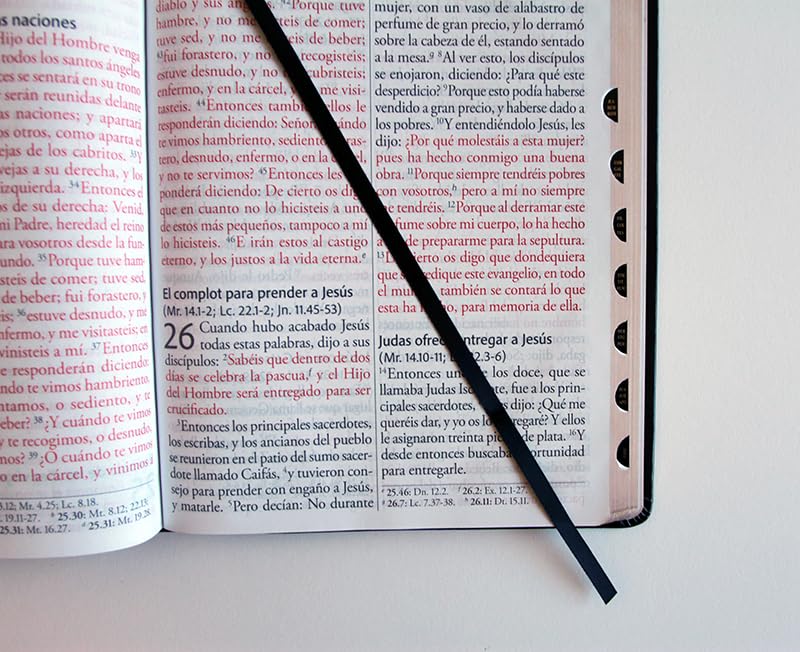 as naciones
Hijo del Hombre venga
todos los santos ángeles
ces se sentará en su trono
serán reunidas delante
as naciones; y apartará
os otros, como aparta el
ejas de los cabritos. 33Y
vejas a su derecha, y los
izquierda. 34Entonces el
os de su derecha: Venid,
mi Padre, heredad el reino
ara vosotros desde la fun-
undo. 35Porque tuve ham-
steis de comer; tuve sed,
de beber; fui forastero, y
36estuve desnudo, y me
nfermo, y me visitasteis; en
vinisteis a mí. 37Entonces
e responderán diciendo:
ndo te vimos hambriento,
ntamos, o sediento, y te
eber? 38¿Y cuándo te vimos
y te recogimos, o desnudo,
mos? 39¿O cuándo te vimos
o en la cárcel, y vinimos a
3.12; Mr. 4.25; Lc. 8.18.
19.11-27. b 25.30: Mr. 8.12; 22.13;
25.31: Mt. 16.27. d 25.31: Mt. 19.28.
diablo y sus 42Porque tuve
hambre, y no me de comer;
tuve sed, y no me steis de beber;
43fui forastero, y no recogisteis;
estuve desnudo, y no cubristeis;
enfermo, y en la cárcel, me visi-
tasteis. 44Entonces también ellos le
responderán diciendo: Señor, cuándo
te vimos hambriento, sediento, foras-
tero, desnudo, enfermo, o en la
y no te servimos? 45Entonces les
ponderá diciendo: De cierto os digo
que en cuanto no lo hicisteis a uno
de estos más pequeños, tampoco a mí
lo hicisteis. 46E irán estos al castigo
eterno, y los justos a la vida eterna.e
El complot para prender a Jesús
(Mr. 14.1-2; Lc. 22.1-2; Jn. 11.45-53)
26 Cuando hubo acabado Jesús
todas estas palabras, dijo a sus
discípulos: 2Sabéis que dentro de dos
días se celebra la pascua,f y el Hijo
del Hombre será entregado para ser
crucificado.
3Entonces los principales sacerdotes,
los escribas, y los ancianos del pueblo
se reunieron en el patio del sumo sacer-
dote llamado Caifás, 4y tuvieron con-
sejo para prender con engaño a Jesús,
y matarle. 5Pero decían: No durante
mujer, con un vaso de alabastro de
perfume de gran precio, y lo derramó
sobre la cabeza de él, estando sentado
a la mesa.g 8Al ver esto, los discípulos
se enojaron, diciendo: ¿Para qué este
desperdicio? 9Porque esto podía haberse
vendido a gran precio, y haberse dado a
los pobres. 10Y entendiéndolo Jesús, les
dijo: ¿Por qué molestáis a esta mujer?
pues ha hecho conmigo una buena
obra. 11Porque siempre tendréis pobres
con vosotros,h pero a mí no siempre
me tendréis. 12Porque al derramar este
perfume sobre mi cuerpo, lo ha hecho
de prepararme para la sepultura.
13De cierto os digo que dondequiera
que se predique este evangelio, en todo
el mundo, también se contará lo que
esta ha hecho, para memoria de ella.
Judas ofrece entregar a Jesús
(Mr. 14.10-11; Lc. 22.3-6)
14Entonces uno de los doce, que se
llamaba Judas Iscariote, fue a los prin-
cipales sacerdotes, 15y les dijo: ¿Qué me
queréis dar, y yo os lo entregaré? Y ellos
le asignaron treinta piezas de plata. 16Y
desde entonces buscaba oportunidad
para entregarle.
e 25.46: Dn. 12.2. f 26.2: Ex. 12.1-27.
g 26.7: Lc. 7.37-38. h 26.11: Dt. 15.11.